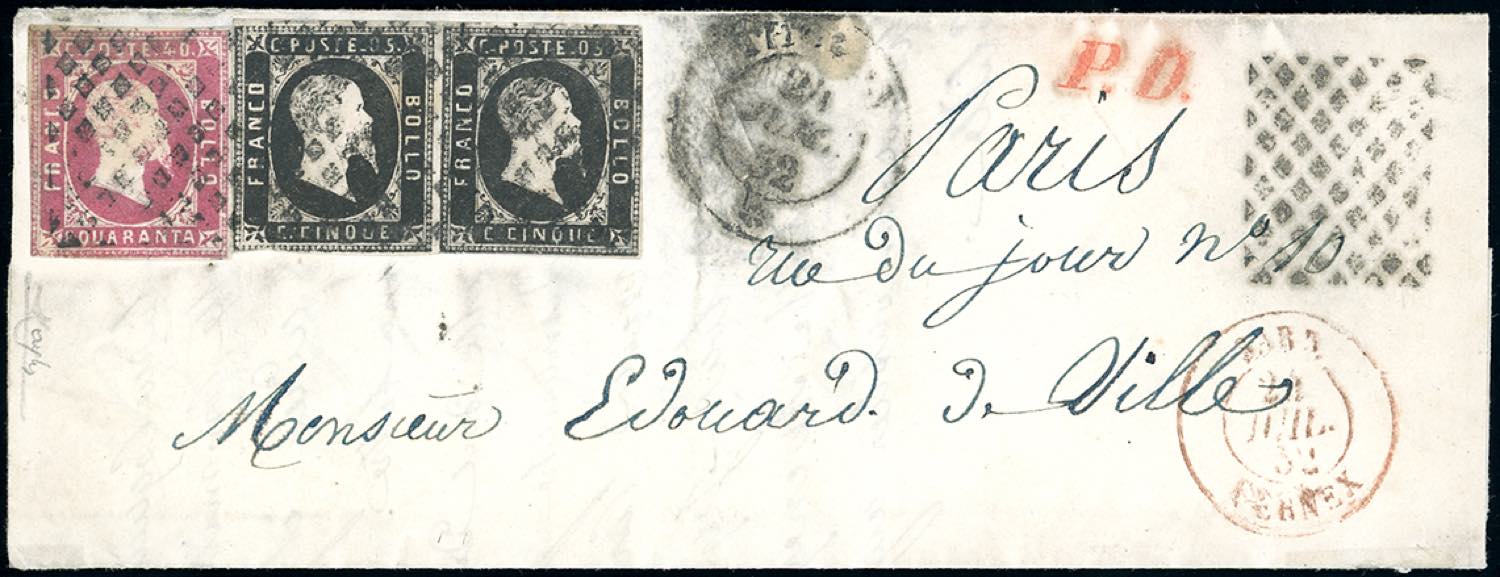 C. POSTE. 40.
FRANCO
BOLLO
QUARANTA
C. POSTE. 05.
FRANCO
BOLLO
C. CINQUE
C. POSTE. 05.
FRANCO
BOLLO
C. CINQUE
52
P.D.
Paris
rue du jour n° 10
Monsieur Edouard. De Ville
24
JUIL.
52
FERNEX